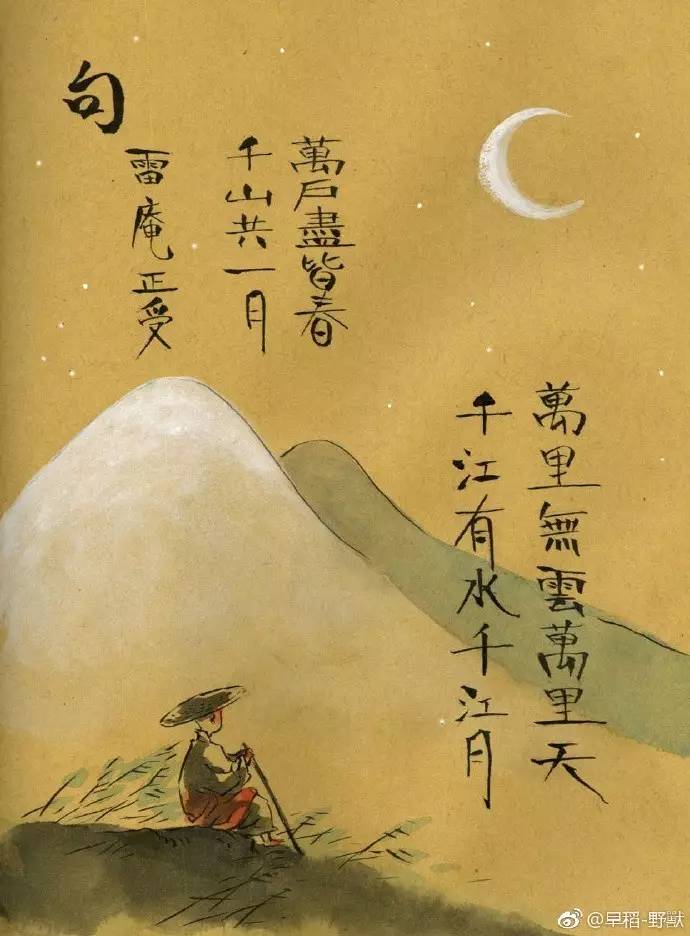 句
萬户盡皆春
千山共一月
雷庵正受
萬里無雲萬里天
千江有水千江月
@早稻-野獸